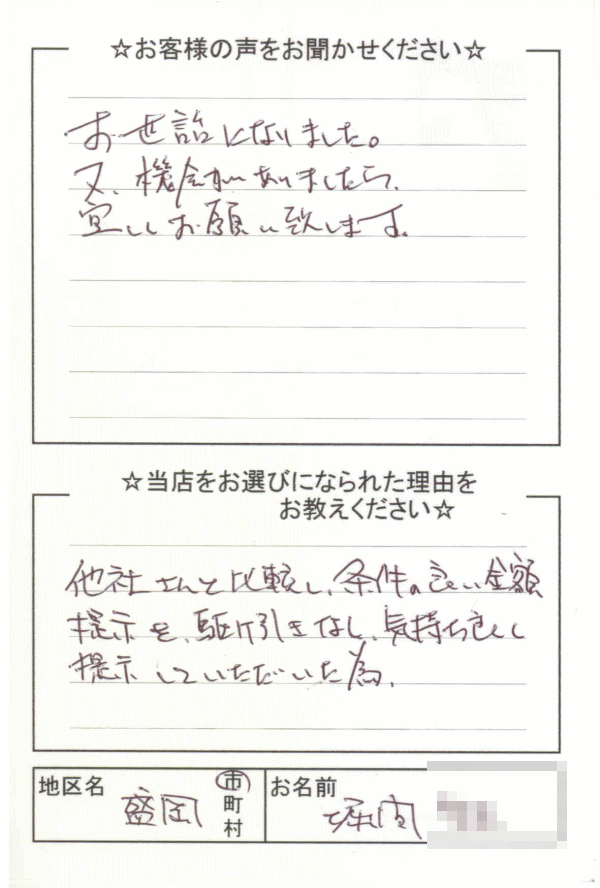 ☆お客様の声をお聞かせください☆
お世話になりました。
又、機会がありましたら、
宜しくお願い致します。
☆当店をお選びになられた理由を
お教えください☆
他社さんと比較し、条件の良い金額
提示を、駆け引きなし、気持ち良く
提示していただいた為、
地区名
盛岡
市
町
村
お名前
堀内